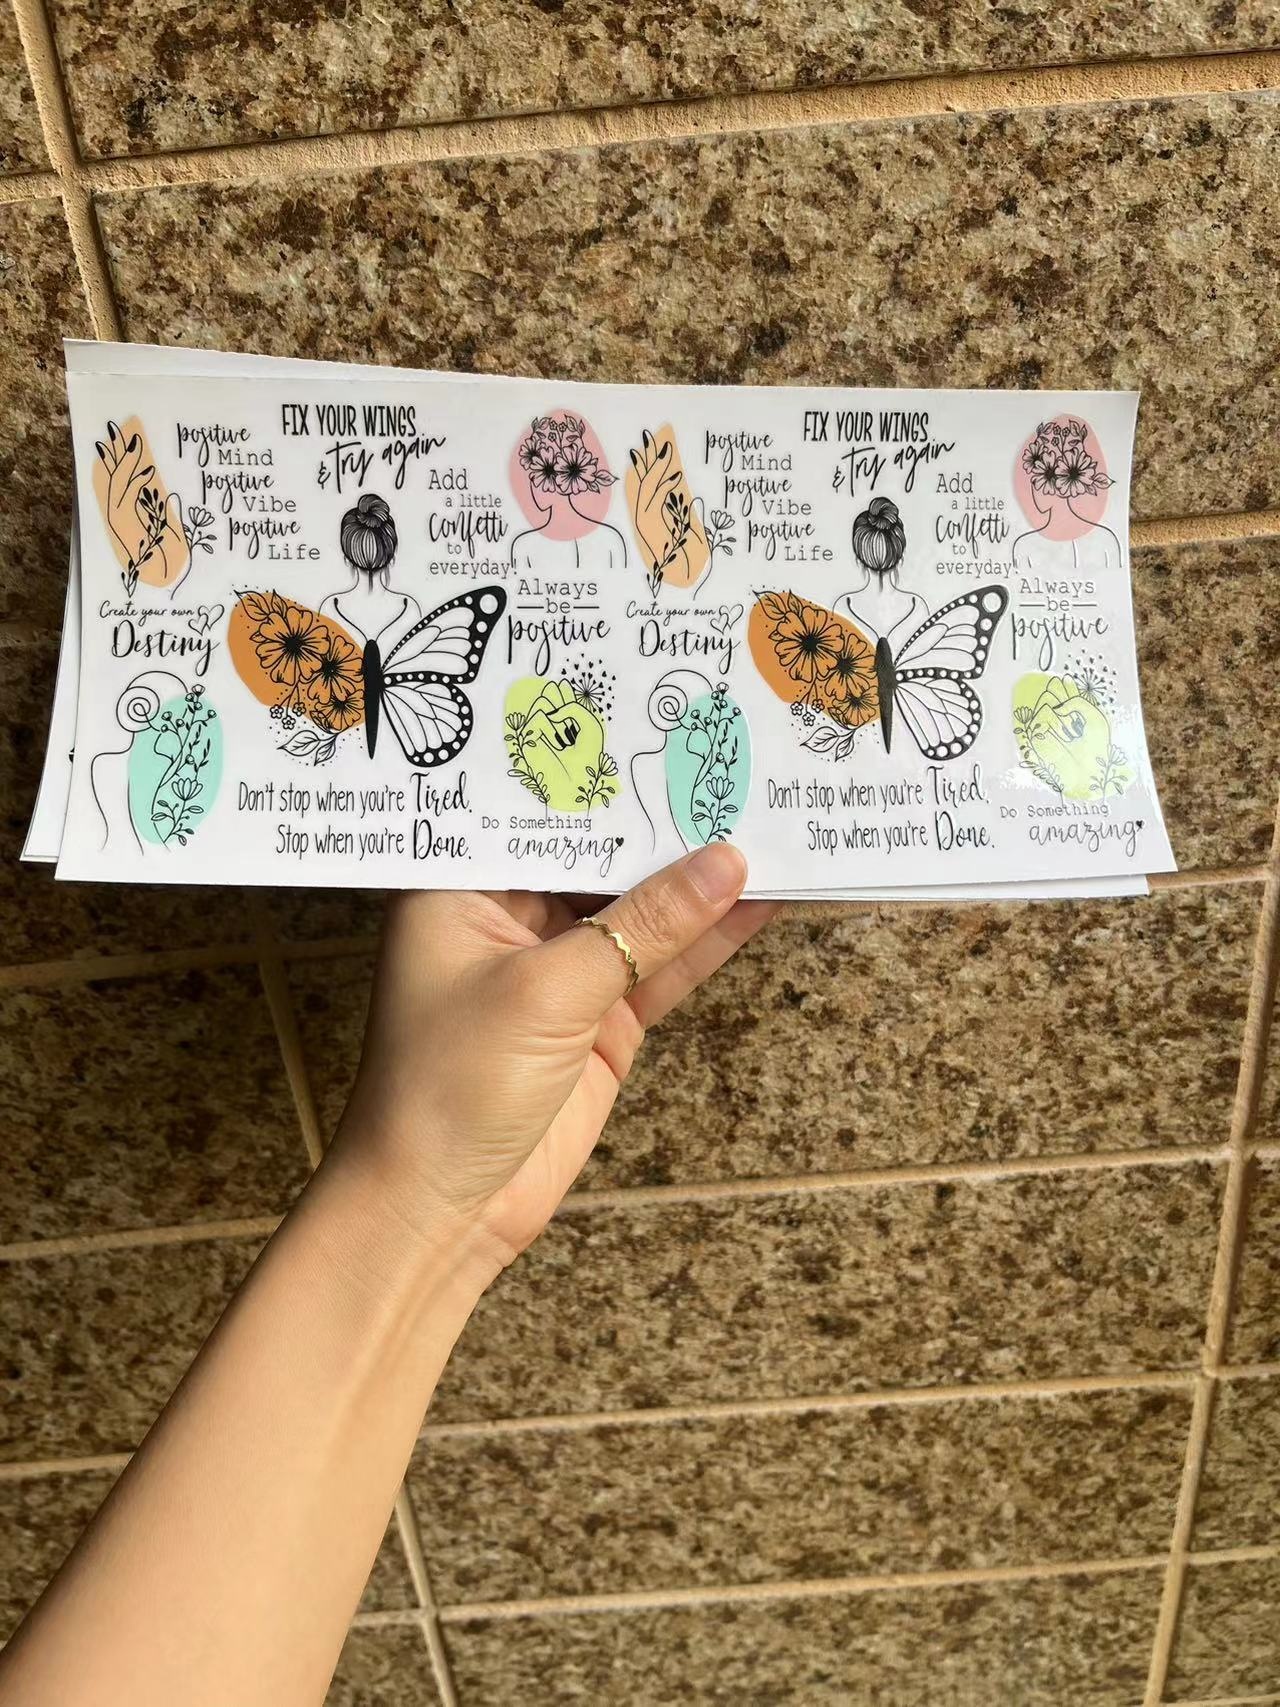 FIX YOUR WINGS
& Try again
positive
Mind
positive
Vibe
positive
Life
Add
a little
Confetti
to
everyday!
Create your own
Destiny
Always
be
positive
Don't stop when you're Tired.
Stop when you're Done.
Do Something
amazing
FIX YOUR WINGS
& Try again
positive
Mind
positive
Vibe
positive
Life
Add
a little
Confetti
to
everyday!
Create your own
Destiny
Always
be
positive
Don't stop when you're Tired.
Stop when you're Done.
Do Something
amazing